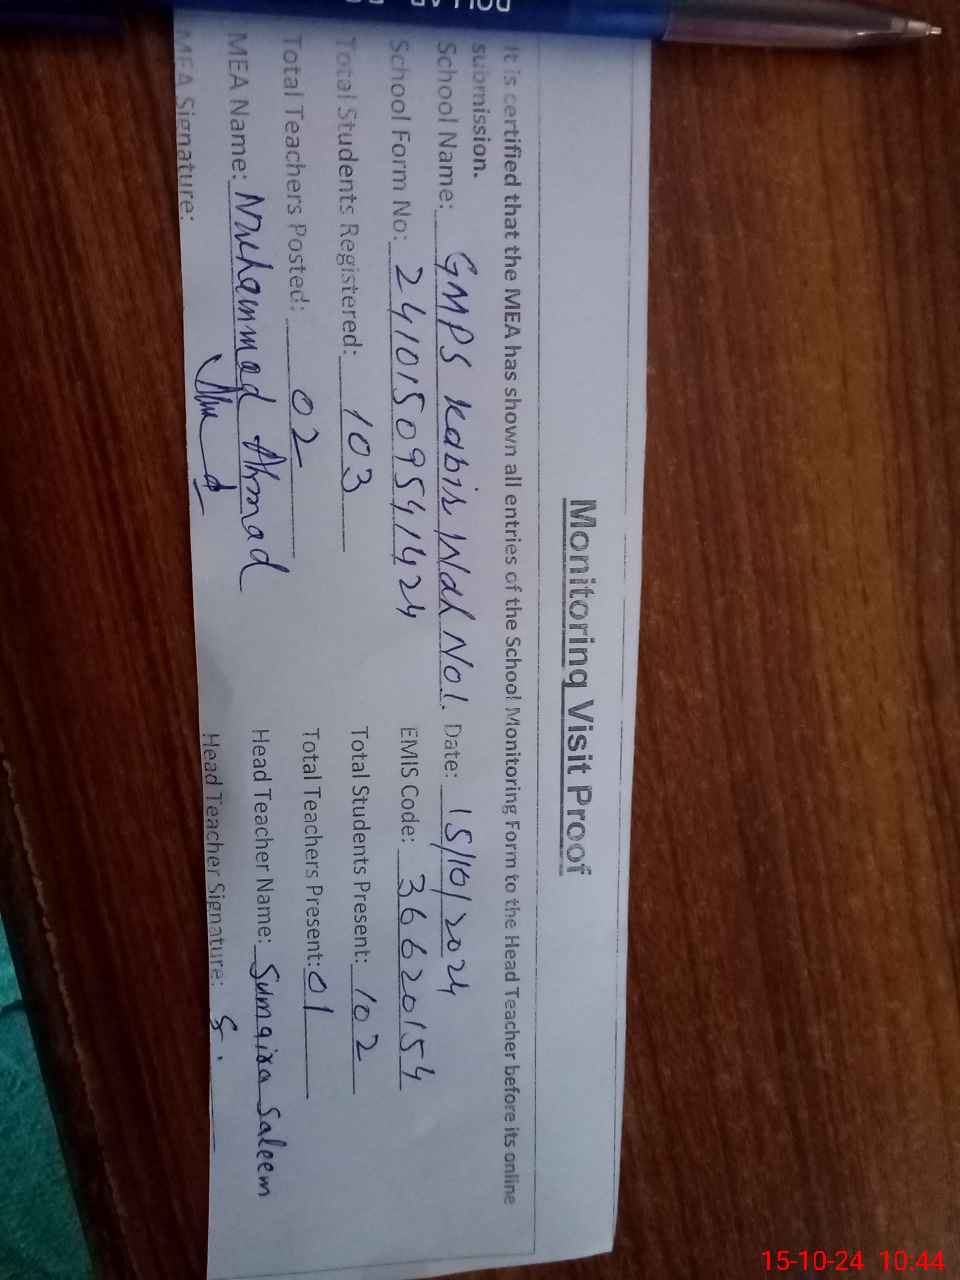 Monitoring Visit Proof
It is certified that the MEA has shown all entries of the School Monitoring Form to the Head Teacher before its online
submission.
School Name: GMPS Kabir Wah No1. Date: 15/10/2024
School Form No: 24101509541424 EMIS Code: 36620154
Total Students Registered: 103 Total Students Present: 102
Total Teachers Posted: 02 Total Teachers Present: 01
MEA Name: Muhammad Ahmad Head Teacher Name: Sumaira Saleem
MEA Signature: Head Teacher Signature: S.
15-10-24 10:44